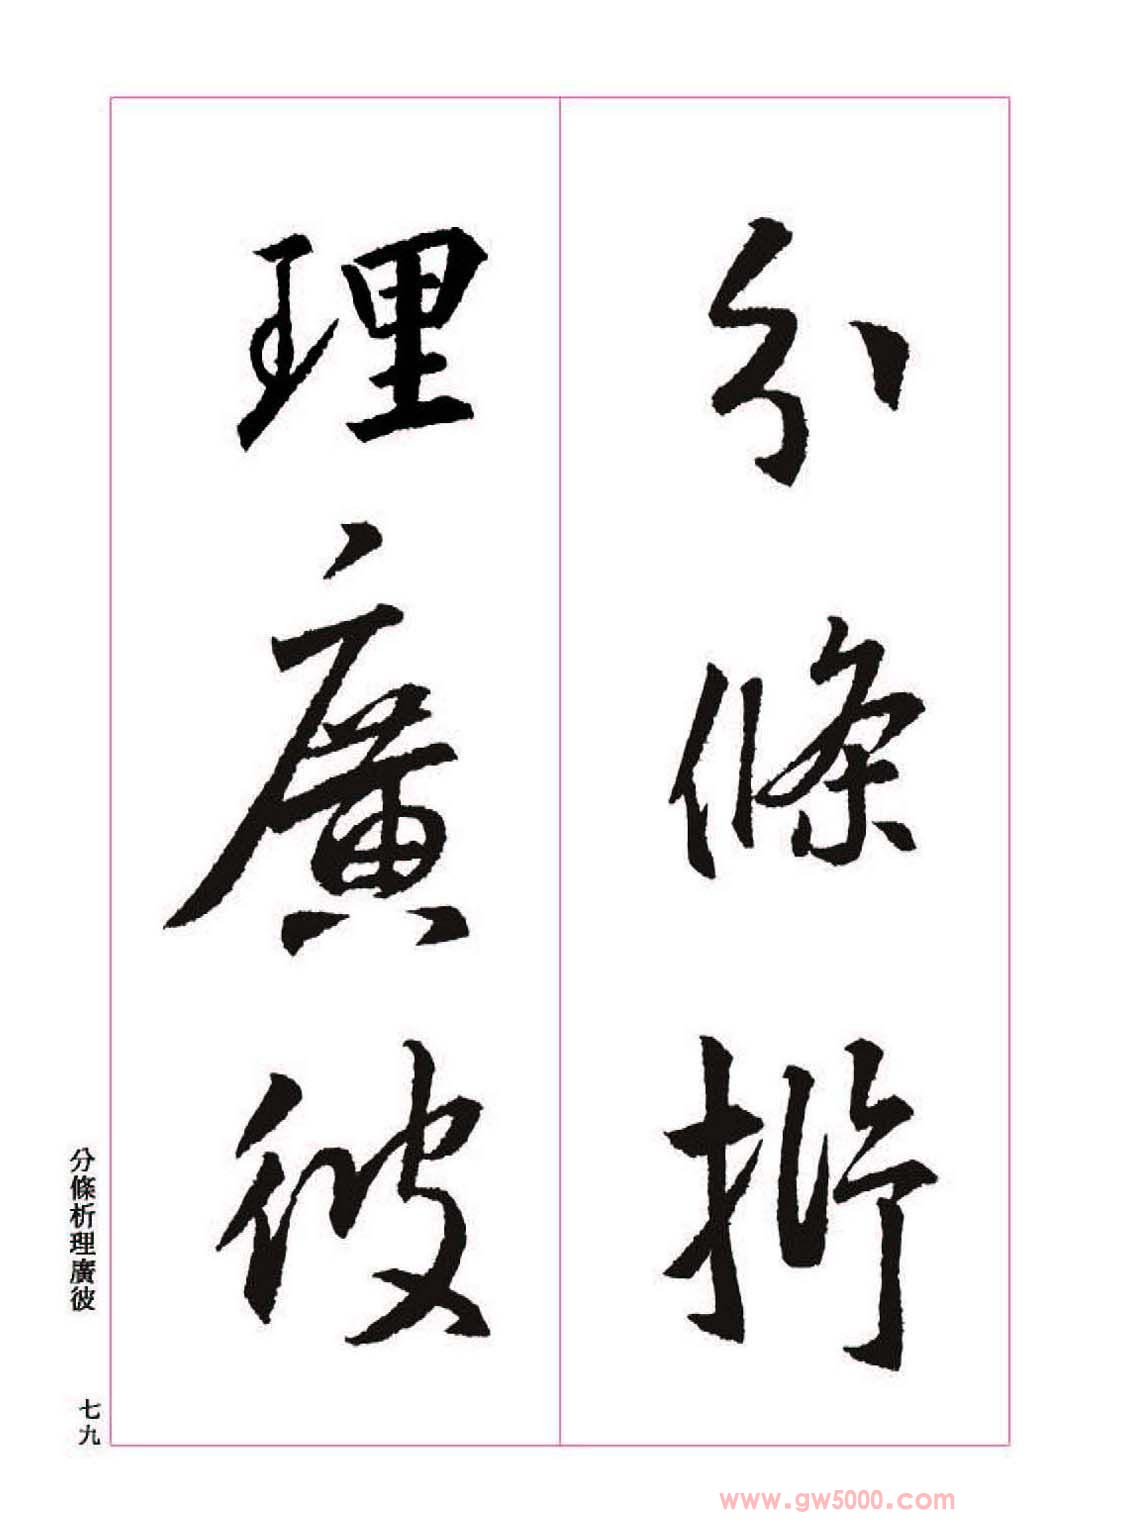 分條析
理廣彼
分條析理廣彼
七九
www.gw5000.com